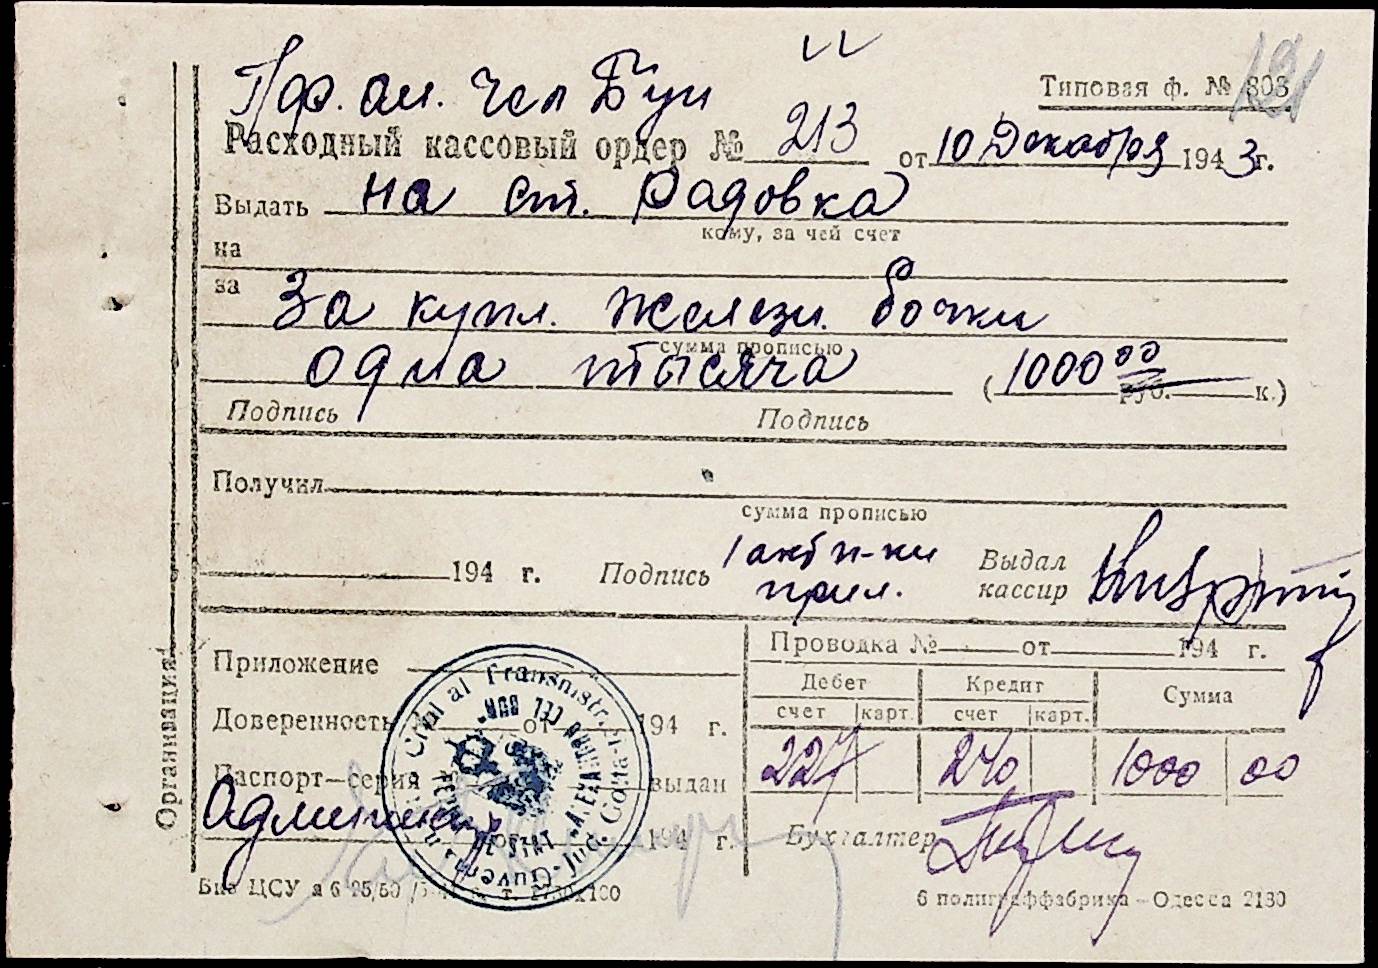 Пф. ом. Чел Буи
Типовая ф. № 303
191
Расходный кассовый ордер № 213 от 10 Декабря 1943 г.
Выдать на ст. Радовка
кому, за чей счет
на
за За купл. железн. бочки
сумма прописью
одна тысяча (1000 00 руб. к.)
Подпись Подпись
Получил
сумма прописью
194 г. Подпись 1 акт п-ки прил. Выдал кассир
Организация
Приложение
Доверенность от 194 г.
Паспорт—серия выдан
194 г.
Проводка № от 194 г.
Дебет Кредит Сумма
счет карт. счет карт.
227 240 1000 00
Бухгалтер
Guvern. Civil al Transnistr. Jud. Golta
"ALEXANDRU CEL BUN"
FERMA DE STAT
6 полиграффабрика—Одесса 2130